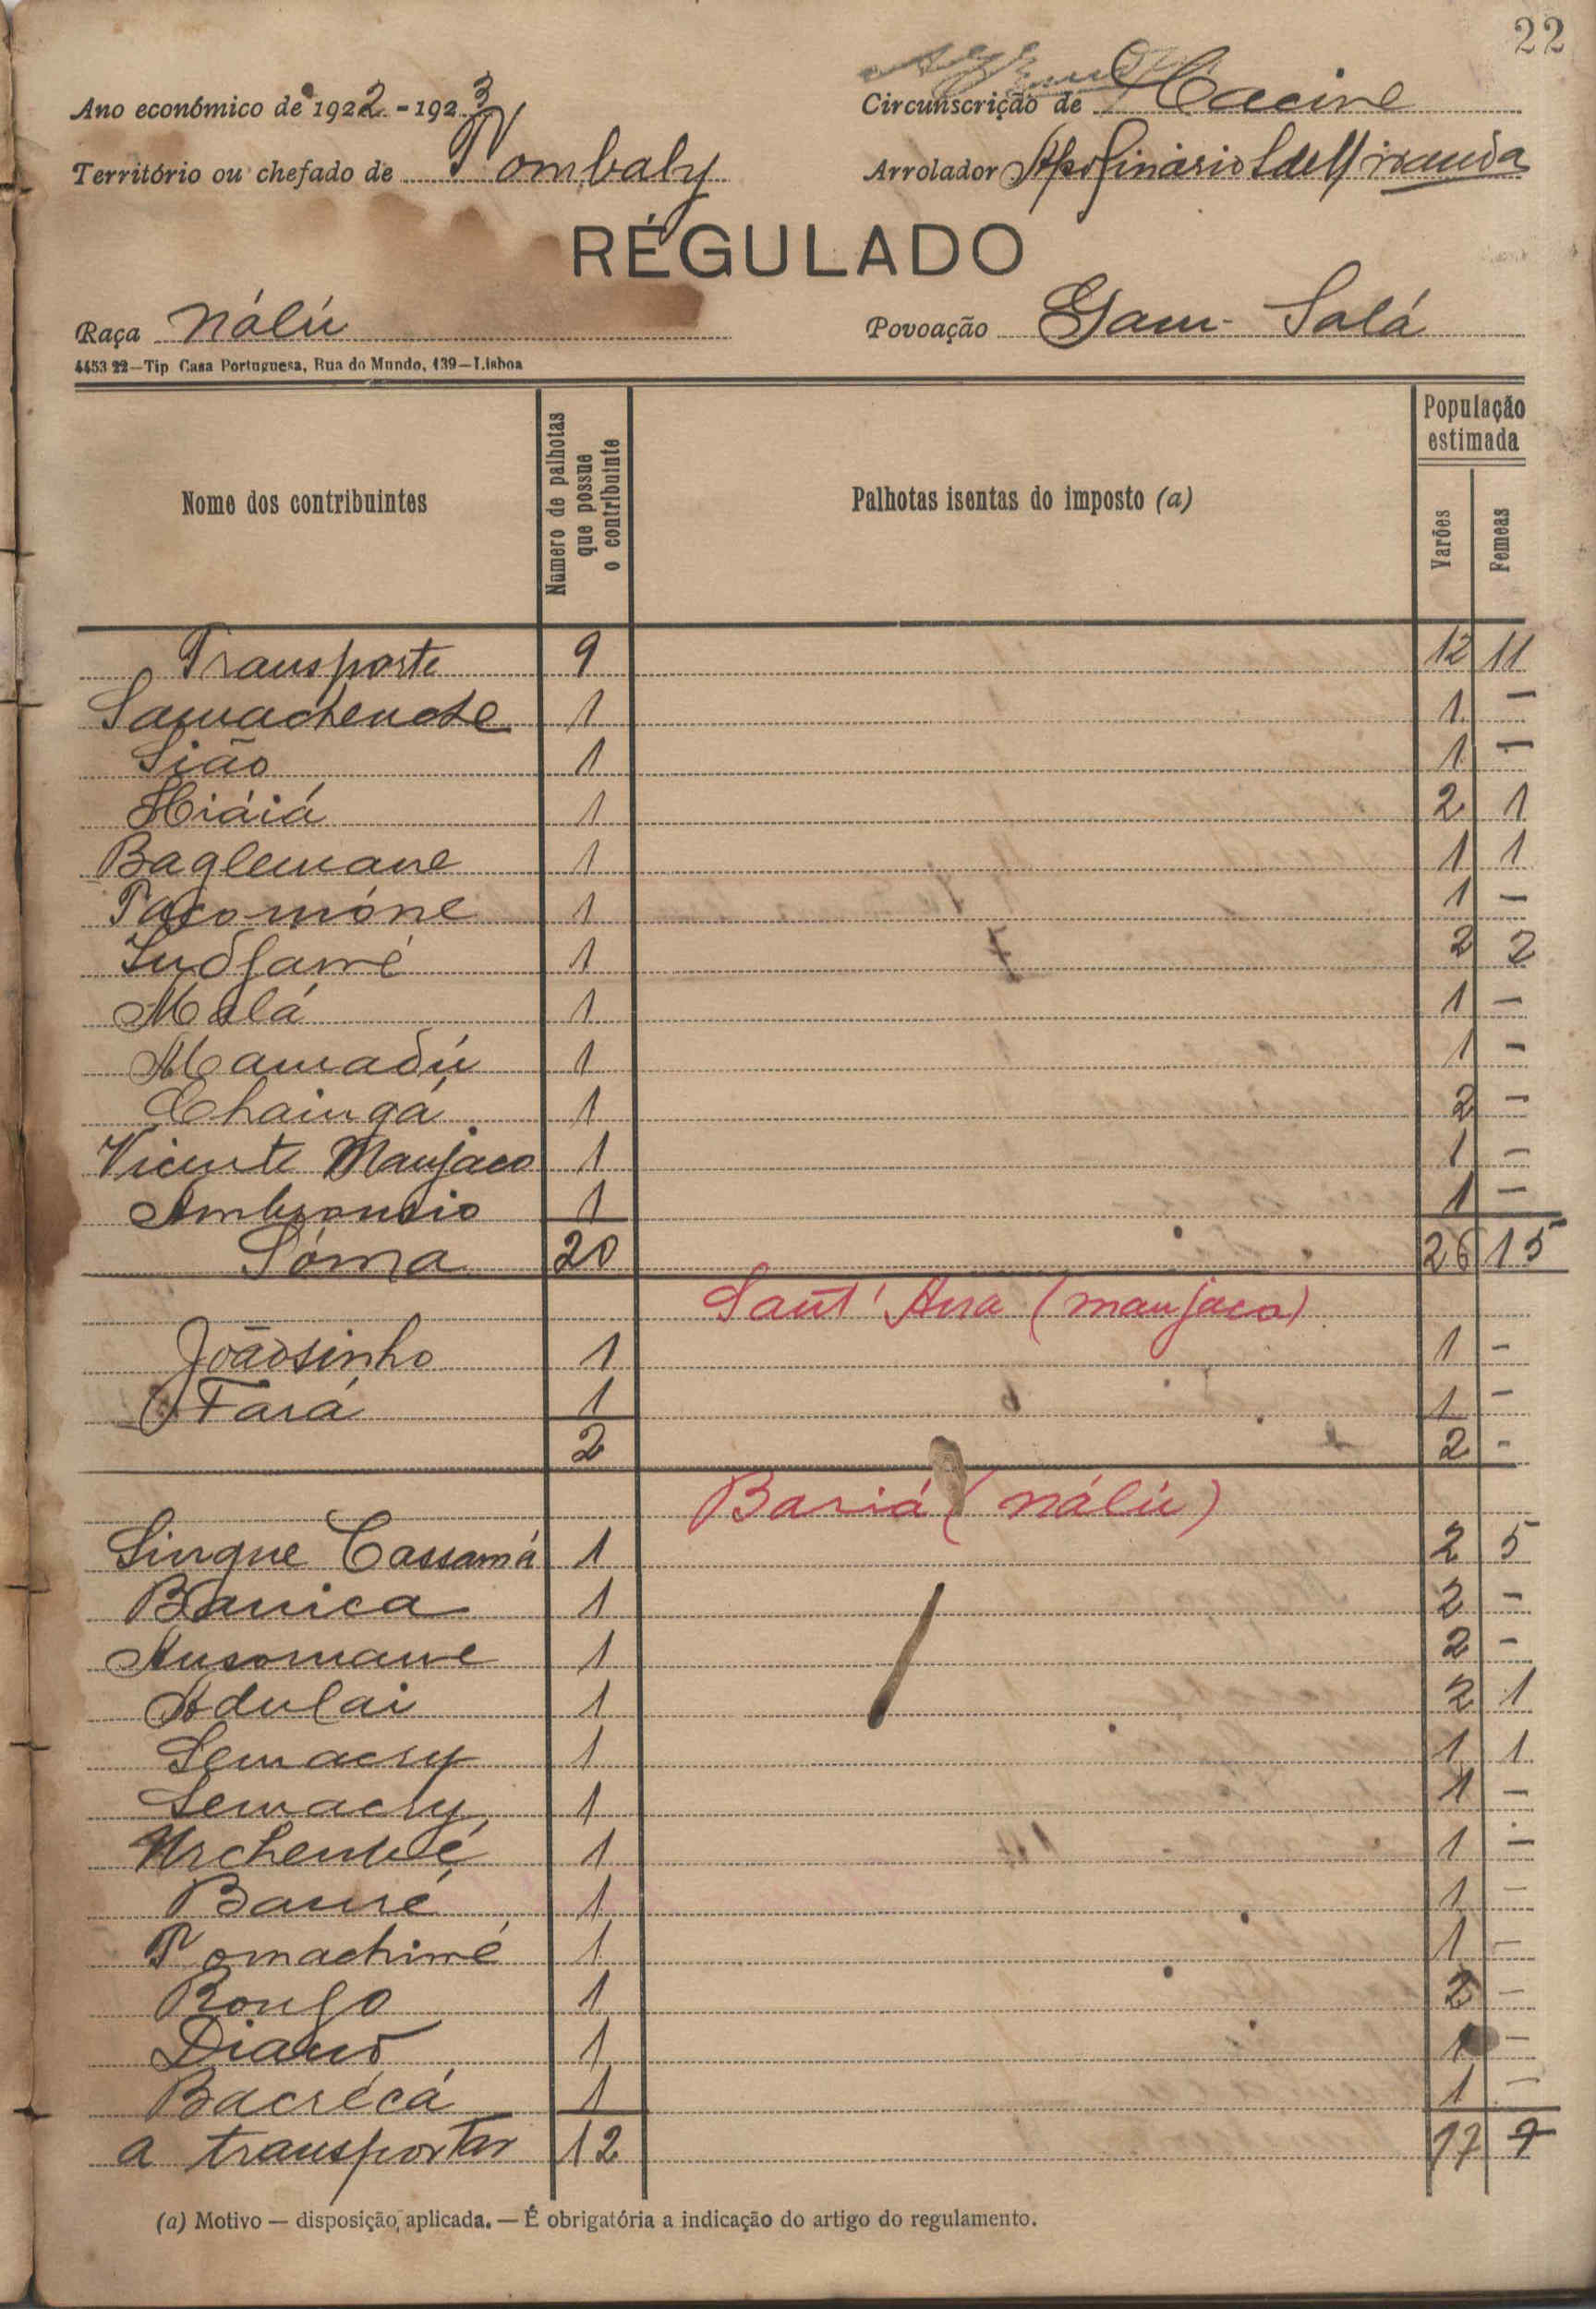 22
Ano económico de 1922-1923
Circunscrição de Cacine
Território ou chefado de Tombaly
Arrolador Apolinário S de Miranda
RÉGULADO
Raça nálú
Povoação Gam-Salá
4453 22—Tip Casa Portuguesa, Rua do Mundo, 139—Lisboa
Nome dos contribuintes
Número de palhotas que possue o contribuinte
Palhotas isentas do imposto (a)
População estimada
Varões Femeas
Transporte 9 12 11
Samachenote 1 1 —
Sião 1 1 —
Hiáiá 1 2 1
Baglemane 1 1 1
Tacomóne 1 1 —
1 2 2
Malá 1 1 —
Mamadú 1 1 —
Chaingá 1 2 —
Vicente Manjaco 1 1 —
Ambronsio 1 1 —
Sóma 20 26 15
Sant'Ana (manjaco)
Joãosinho 1 1 —
Fará 1 1 —
2 2 -
Bariá (nálú)
Lingne Cassamá 1 2 5
Banica 1 2 —
Ansomane 1 2 —
Adulai 1 2 1
Semacry 1 1 1
Semacry 1 1 —
1 1 —
Banré 1 1 —
Tomachimé 1 1 —
Bongo 1 2 —
1 1 —
Bacrécá 1 1 —
a transportar 12 17 7
(a) Motivo — disposição, aplicada. — É obrigatória a indicação do artigo do regulamento.